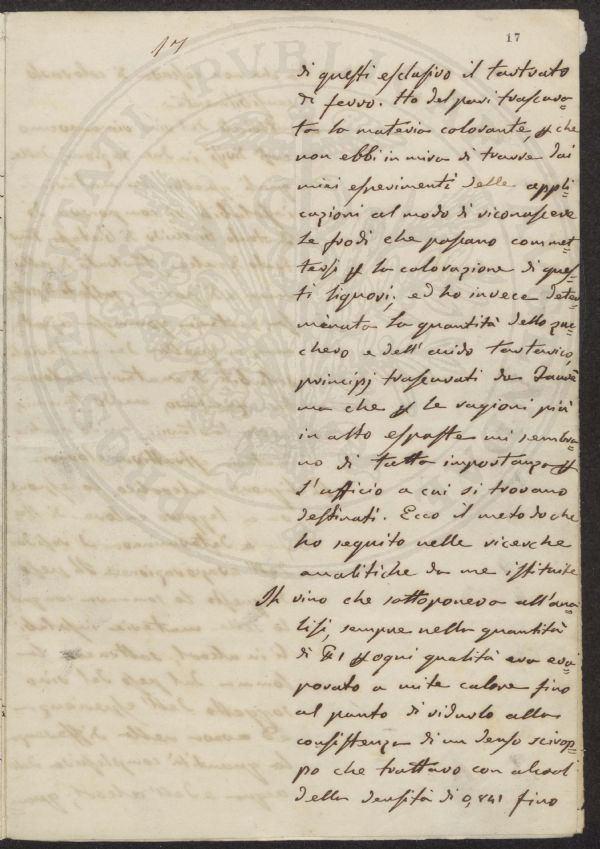 17
17
di questi esclusivo il tartrato
di ferro. Ho del pari trascura=
ta la materia colorante, p che
non ebbi in mira di trarre dai
miei esperimenti delle appli=
cazioni al modo di riconoscere
le frodi che possano commet=
tersi p la colorazione di ques=
ti liquori; ed ho invece deter=
minata la quantità dello zuc=
chero e dell'acido tartarico,
principj trascurati da Faurè
ma che p le ragioni più
in alto esposte mi sembra=
no di tutta importanza p
l'ufficio a cui si trovano
destinati. Ecco il metodo che
ho seguito nelle ricerche
analitiche da me istituite
Il vino che sottoponeva all'ana=
lisi, sempre nella quantità
di 1 p ogni qualità era eva=
porato a mite calore fino
al punto di ridurlo alla
consistenza di un denso scirop=
po che trattavo con alcool
della densità di 0,841 fino